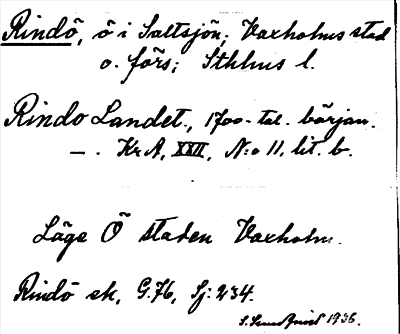 Rindö, ö i Saltsjön; Vaxholms stad
o. förs; Sthlms l.
Rindo Landet., 1700-tal. början.
— . Kr A, XXII, N:o 11, lit. b.
Läge Ö staden Vaxholm.
Rindö ek, G. 76, Sj: 234.
S. 1936.